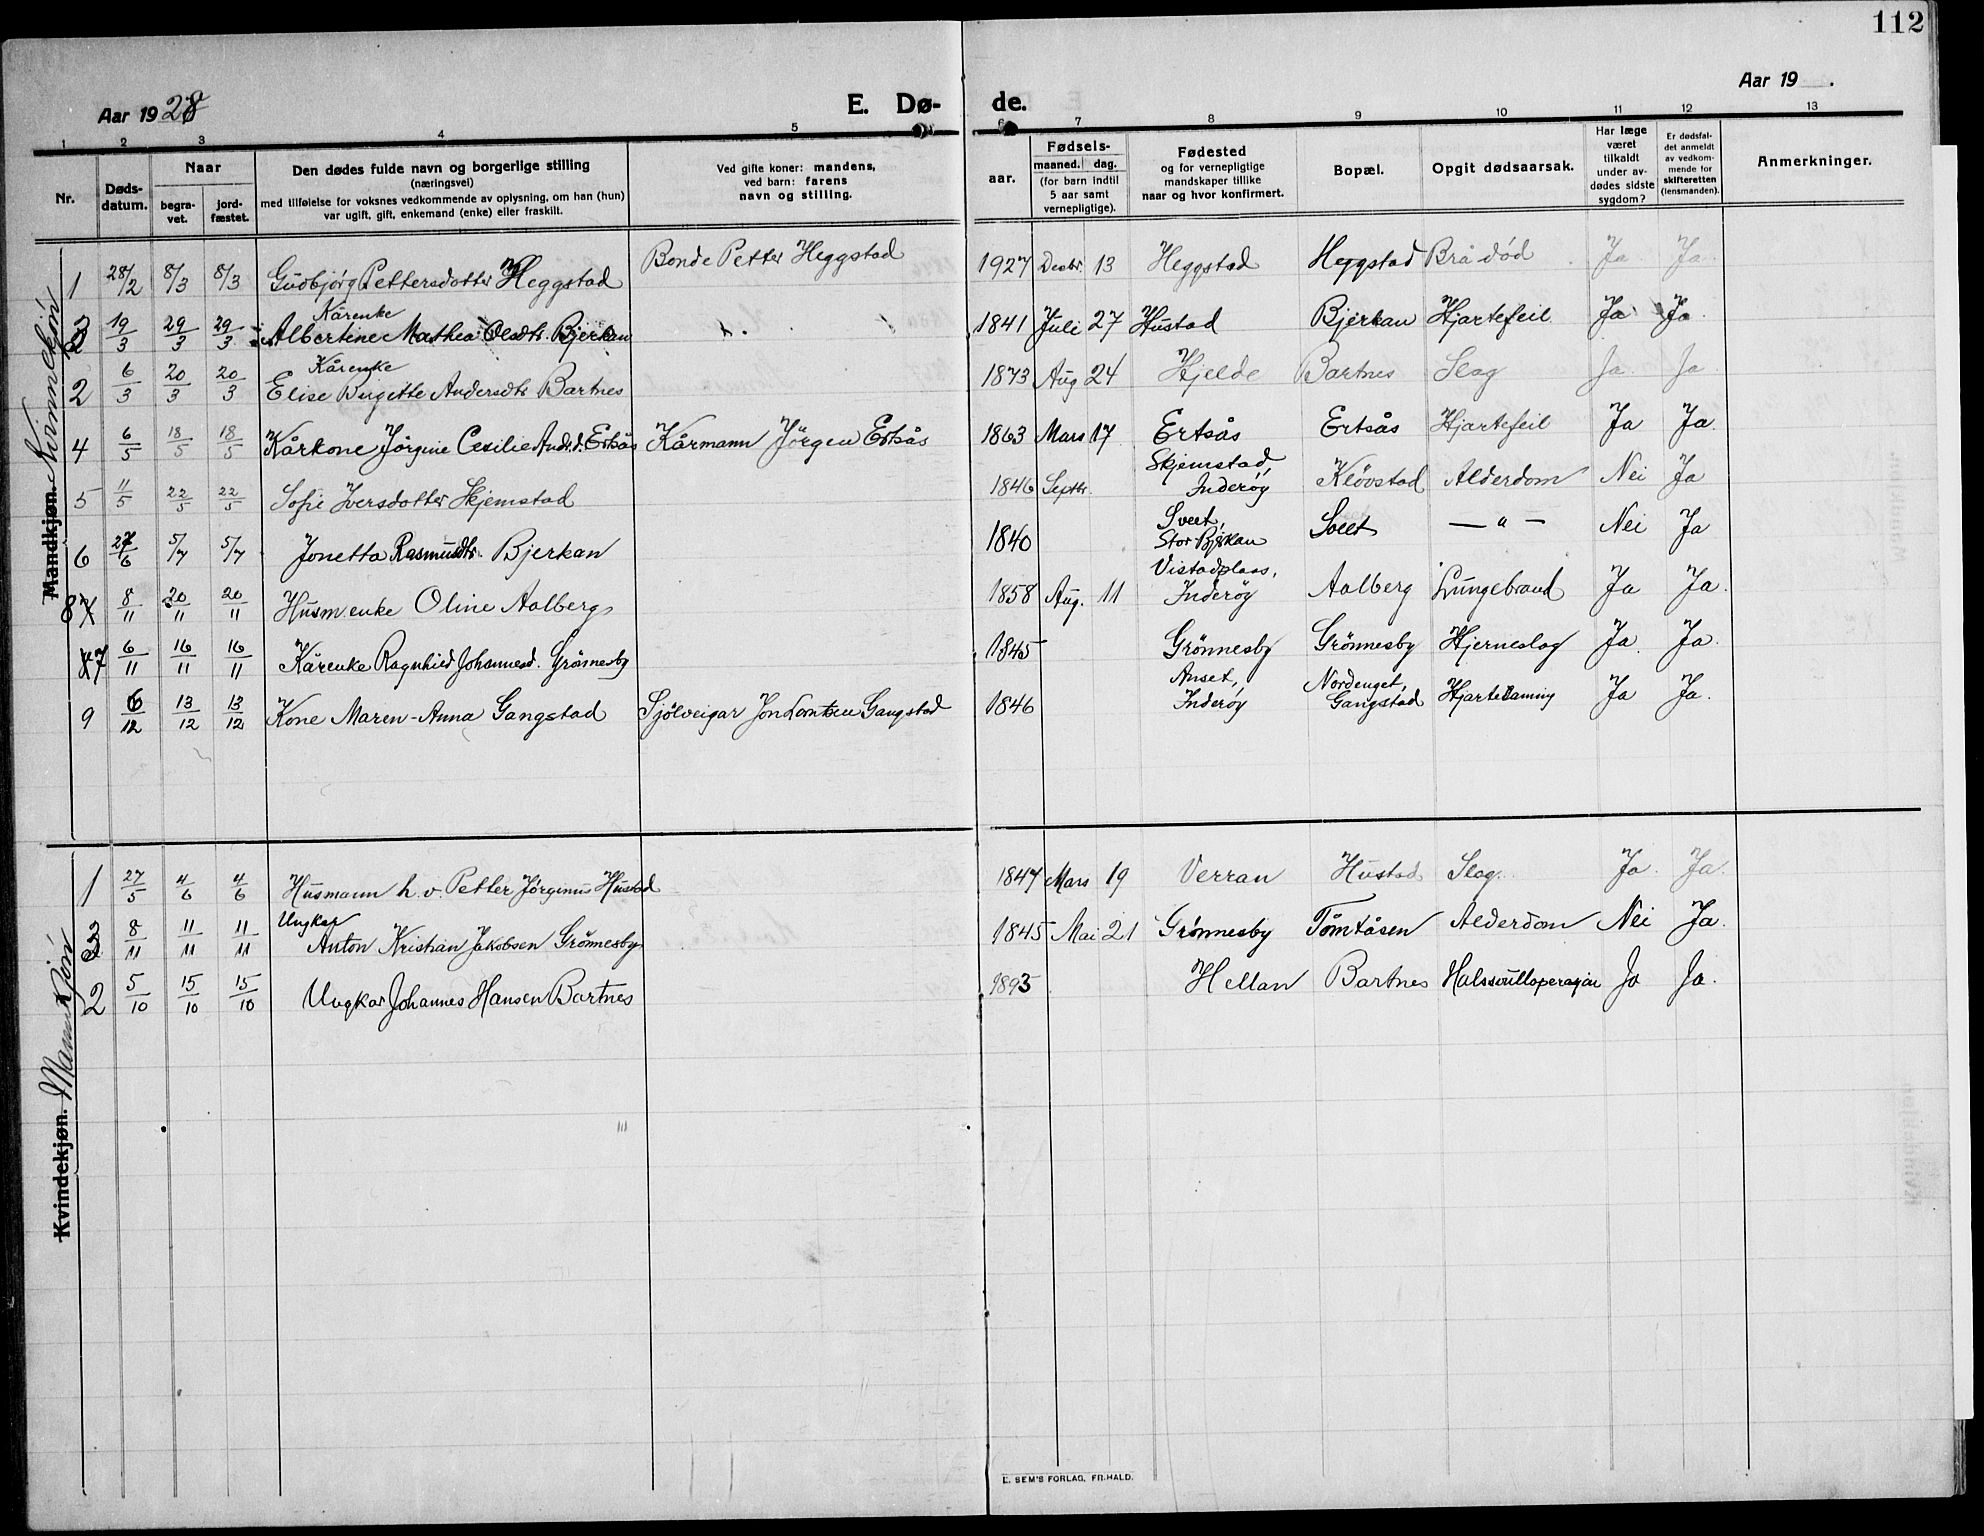 112
Aar 1928
E. Dø-
de.
Aar 19 .
1 2 3 4 5 6 7 8 9 10 11 12 13
Nr.
Døds-
datum.
Naar
begra-
vet.
jord-
fæstet.
Den dødes fulde navn og borgerlige stilling
(næringsvei)
med tilføielse for voksnes vedkommende av oplysning, om han (hun)
var ugift, gift, enkemand (enke) eller fraskilt.
Ved gifte koner: mandens,
ved barn: farens
navn og stilling.
aar.
Fødsels-
maaned. dag.
(for barn indtil
5 aar samt
vernepligtige).
Fødested
og for vernepligtige
mandskaper tillike
naar og hvor konfirmert.
Bopæl.
Opgit dødsaarsak.
Har læge
været
tilkaldt
under av-
dødes sidste
sygdom?
Er dødsfal-
det anmeldt
av vedkom-
mende for
skifteretten
(lensmanden).
Anmerkninger.
Mandkjøn. Kvinnekjön
1 28/2 8/3 8/3 Gudbjørg Pettersdotter Heggstad Bonde Petter Heggstad 1927 Desbr. 13 Heggstad Heggstad Brå död Ja Ja
Kårenke
3 19/3 29/3 29/3 Albertine Mathea Olsdtr. Bjerkan 1841 Juli 27 Hustad Bjerkan Hjartefeil Ja Ja
Kårenke
2 6/3 20/3 20/3 Elise Birgitte Andersdtr Bartnes 1873 Aug 24 Hjelde Bartnes Slag Ja Ja
4 6/5 18/5 18/5 Kårkone Jørgine Cesilie Andr.d. Ertsås Kårmann Jörgen Ertsås 1863 Mars 17 Ertsås Ertsås Hjartefeil Ja Ja
5 11/5 22/5 22/5 Sofie Iversdotter Skjemstad 1846 Septbr. Skjemstad, Inderøy Klövstad Alderdom Nei Ja
6 27/6 5/7 5/7 Jonetta Rasmusdtr. Bjerkan 1840 Sveet, Stor Bjerkan Sveet — " — Nei Ja
8 8/11 20/11 20/11 Husm.enke Oline Aalberg 1858 Aug. 11 Vistadplass, Inderøy Aalberg Lungebrand Ja Ja.
7 6/11 16/11 16/11 Kårenke Ragnhild Johannesd. Grönnesby 1845 Grönnesby Grönnesby Hjerneslag Ja Ja.
9 6/12 13/12 13/12 Kone Maren-Anna Gangstad Sjölveigar Jon Lorntsen Gangstad 1846 Anset, Inderøy Nordenget, Gangstad Hjartelaming Ja Ja.
Kvindekjøn. Mannkjön
1 27/5 4/6 4/6 Husmann h.v. Petter Jørginus Hustad 1847 Mars 19 Verran Hustad Slag. Ja Ja.
Ungkar
3 8/11 11/11 11/11 Anton Kristian Jakobsen Grönnesby 1845 Mai 21 Grønnesby Tömtåsen Alderdom Nei Ja.
2 5/10 15/10 15/10 Ungkar Johannes Hansen Bartnes 1893 Hellan Bartnes Halssvulloperasjon Ja Ja.
E. SEM'S FORLAG, FR.HALD.